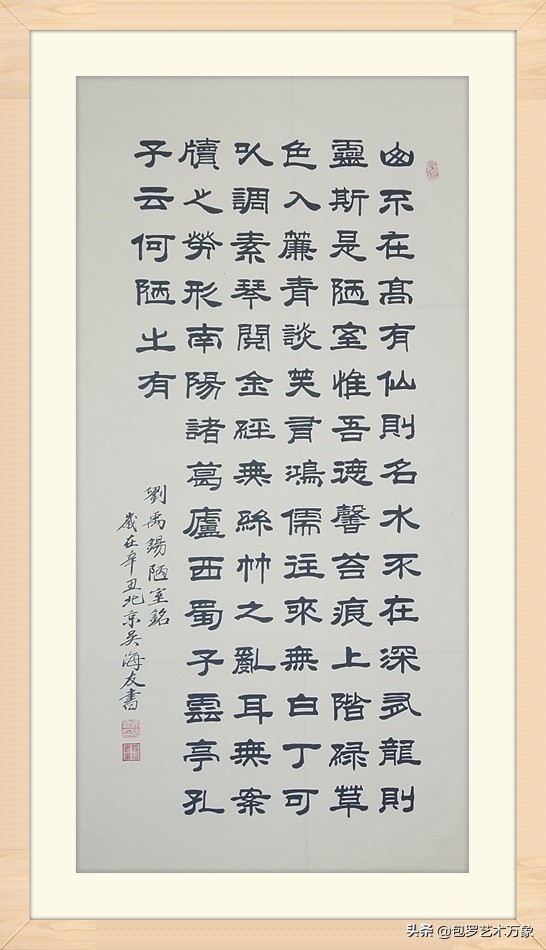 山不在髙有仙則名水不在深有龍則
靈斯是陋室惟吾德馨苔痕上階緑草
色入簾青談笑有鴻儒往來無白丁可
以調素琴閱金經無絲竹之亂耳無案
牘之勞形南陽諸葛廬西蜀子雲亭孔
子云何陋之有
劉禹錫陋室銘
歲在辛丑北京吴海友書
头条 @包罗艺术万象